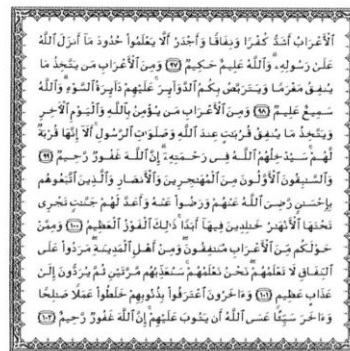 ٱلْأَعْرَابُ أَشَدُّ كُفْرًا وَنِفَاقًا وَأَجْدَرُ أَلَّا يَعْلَمُوا۟ حُدُودَ مَآ أَنزَلَ ٱللَّهُ
عَلَىٰ رَسُولِهِۦ وَٱللَّهُ عَلِيمٌ حَكِيمٌ ٩٧ وَمِنَ ٱلْأَعْرَابِ مَن يَتَّخِذُ مَا
يُنفِقُ مَغْرَمًا وَيَتَرَبَّصُ بِكُمُ ٱلدَّوَآئِرَ عَلَيْهِمْ دَآئِرَةُ ٱلسَّوْءِ وَٱللَّهُ
سَمِيعٌ عَلِيمٌ ٩٨ وَمِنَ ٱلْأَعْرَابِ مَن يُؤْمِنُ بِٱللَّهِ وَٱلْيَوْمِ ٱلْءَاخِرِ
وَيَتَّخِذُ مَا يُنفِقُ قُرُبَٰتٍ عِندَ ٱللَّهِ وَصَلَوَٰتِ ٱلرَّسُولِ أَلَآ إِنَّهَا قُرْبَةٌ
لَّهُمْ سَيُدْخِلُهُمُ ٱللَّهُ فِى رَحْمَتِهِۦٓ إِنَّ ٱللَّهَ غَفُورٌ رَّحِيمٌ ٩٩
وَٱلسَّٰبِقُونَ ٱلْأَوَّلُونَ مِنَ ٱلْمُهَٰجِرِينَ وَٱلْأَنصَارِ وَٱلَّذِينَ ٱتَّبَعُوهُم
بِإِحْسَٰنٍ رَّضِىَ ٱللَّهُ عَنْهُمْ وَرَضُوا۟ عَنْهُ وَأَعَدَّ لَهُمْ جَنَّٰتٍ تَجْرِى
تَحْتَهَا ٱلْأَنْهَٰرُ خَٰلِدِينَ فِيهَآ أَبَدًا ذَٰلِكَ ٱلْفَوْزُ ٱلْعَظِيمُ ١٠٠ وَمِمَّنْ
حَوْلَكُم مِّنَ ٱلْأَعْرَابِ مُنَٰفِقُونَ وَمِنْ أَهْلِ ٱلْمَدِينَةِ مَرَدُوا۟ عَلَى
ٱلنِّفَاقِ لَا تَعْلَمُهُمْ نَحْنُ نَعْلَمُهُمْ سَنُعَذِّبُهُم مَّرَّتَيْنِ ثُمَّ يُرَدُّونَ إِلَىٰ
عَذَابٍ عَظِيمٍ ١٠١ وَءَاخَرُونَ ٱعْتَرَفُوا۟ بِذُنُوبِهِمْ خَلَطُوا۟ عَمَلًا صَٰلِحًا
وَءَاخَرَ سَيِّئًا عَسَى ٱللَّهُ أَن يَتُوبَ عَلَيْهِمْ إِنَّ ٱللَّهَ غَفُورٌ رَّحِيمٌ ١٠٢